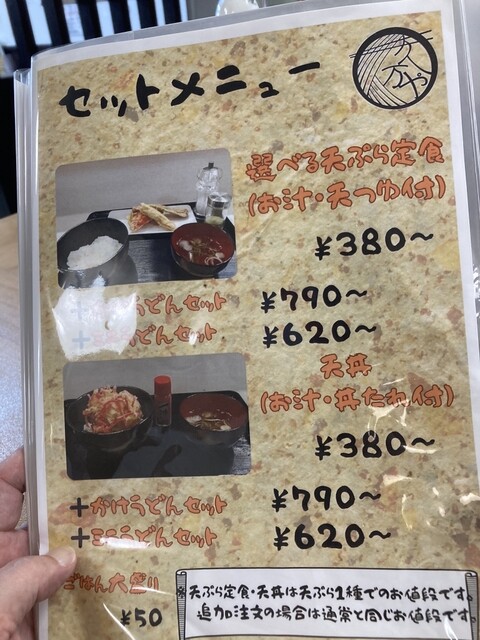 セットメニュー
選べる天ぷら定食
(お汁・天つゆ付)
¥380～
うどんセット ¥790～
うどんセット ¥620～
天丼
(お汁・丼たれ付)
¥380～
+かけうどんセット ¥790～
+ミニうどんセット ¥620～
ごはん大盛り
¥50
※天ぷら定食・天丼は天ぷら1種でのお値段です。
追加注文の場合は通常と同じお値段です。